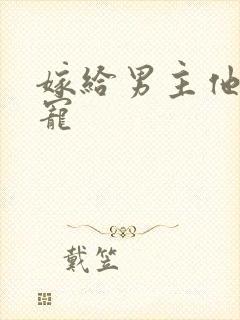 嫁給男主他
寵
戴笠